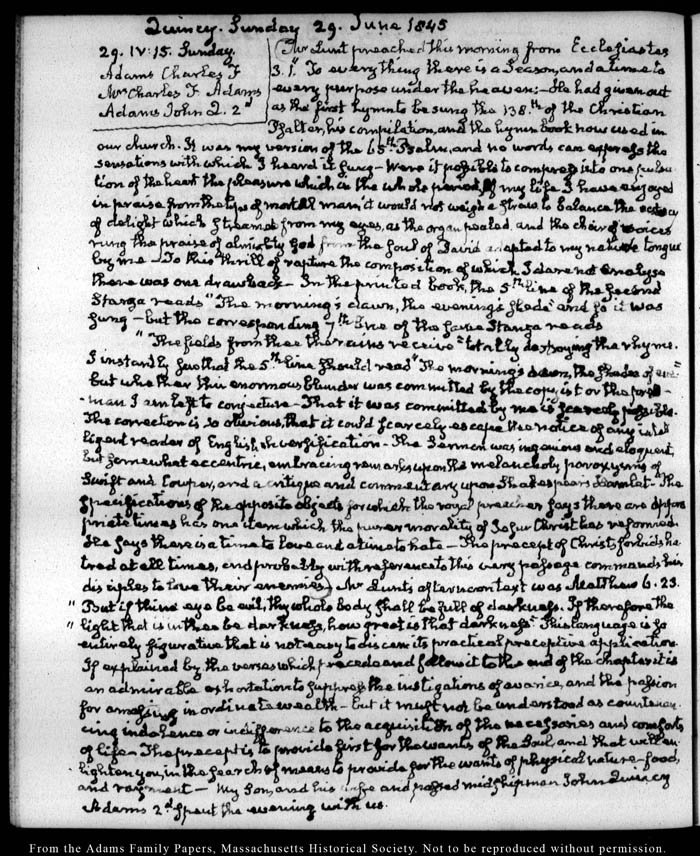 Quincy. Sunday 29. June 1845
29. IV: 15. Sunday.
Adams Charles F
Mrs Charles F. Adams
Adams John Q. 2d
Mr Lunt preached this morning from Ecclesiastes
3. 1. "To every thing there is a season, and a time to
every purpose under the heaven:— He had given out
as the first hymn to be sung the 138.th of the Christian
Psalter, his compilation, and the hymn book now used in
our church. It was my version of the 65th Psalm, and no words can express the
sensations with which I heard it sung— Were it possible to compress into one pulsa
tion of the heart the pleasure which in the whole period of my life I have enjoyed
in praise from the lips of mortal man, it would not weigh a straw to balance the ecstacy
of delight which streamed from my eyes, as the organ pealed and the choir of voices
rung the praise of almighty God from the soul of David adapted to my native tongue
by me— To this thrill of rapture the composition of which I dare not analyse
there was one drawback— In the printed book, the 5th line of the second
Stanza reads "The morning's dawn, the evening's shade" and so it was
sung— but the corresponding 7th line of the same Stanza reads
"The fields from thee the rains receive" totally destroying the rhyme.
I instantly saw that the 5th line should read "The morning's dawn, the shades of eve"
but whether this enormous blunder was committed by the copyist or the press-
-man I am left to conjecture— That it was committed by me is scarcely possible.
The correction is so obvious, that it could scarcely escape the notice of any intel
ligent reader of English versification— The Sermon was ingenious and eloquent,
but somewhat eccentric, embracing remarks upon the melancholy paroxysms of
Swift and Cowper, and a critique and commentary upon Shakespears Hamlet— The
specifications of the opposite objects for which the royal preacher says there are appro
priate times has one item which the purer morality of Jesus Christ has reformed
He says there is a time to love and a time to hate— The precept of Christ forbids ha
tred at all times, and probably with reference to this very passage commands his
disciples to love their enemies, Mr Lunts afternoon text was Matthew 6. 23.
" But if thine eye be evil, thy whole body shall be full of darkness. If therefore the
" light that is in thee be darkness, how great is that darkness" This language is so
entirely figurative that is not easy to discern its practical preceptive application.
If explained by the verses which precede and follow it to the end of the chapter it is
an admirable exhortation to suppress the instigations of avarice, and the passion
for amassing inordinate wealth— but it must not be understood as countenan-
cing indolence or indifference to the acquisition of the necessaries and comforts
of life— The precept is to provide first for the wants of the Soul, and that will en-
lighten you, in the search of means to provide for the wants of physical nature— food,
and raiment— My Son, and his wife and passed midshipman John Quincy
Adams 2d spent the evening with us.
From the Adams Family Papers, Massachusetts Historical Society. Not to be reproduced without permission.